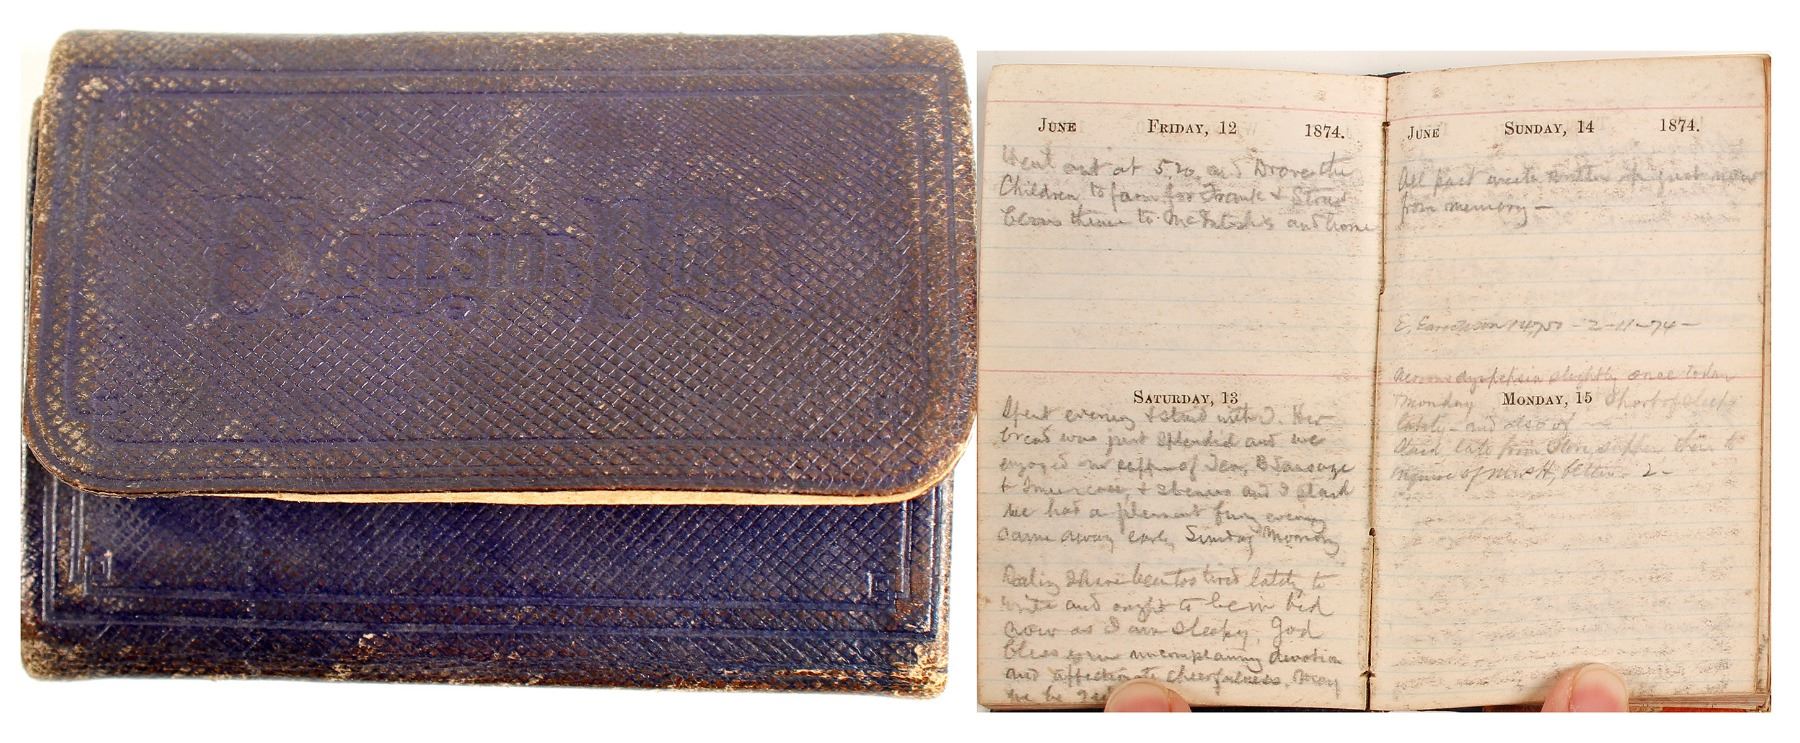 EXCELSIOR
JUNE FRIDAY, 12 1874.
Went out at 5, and Drove the
Children to farm for Frank & Straw
berries thence to McIntosh's and home
SATURDAY, 13
Spent evening & staid with J. Her
bread was just splendid and we
enjoyed our supper of Tea, B Sausage
& and I staid
We had a pleasant evening
Came away early Sunday Morning
I have been too tired lately to
write and ought to be in bed
now as I am sleepy. God
bless your uncomplaining devotion
and affectionate cheerfulness. May
we be
JUNE SUNDAY, 14 1874.
All past week written up just now
from memory —
E, - 2-11-74 -
Nervous dyspepsia slightly once today
Monday MONDAY, 15 Short of sleep
lately - and also of
Staid late from Store, supper then to
inquire of Mrs H, better - 2 -